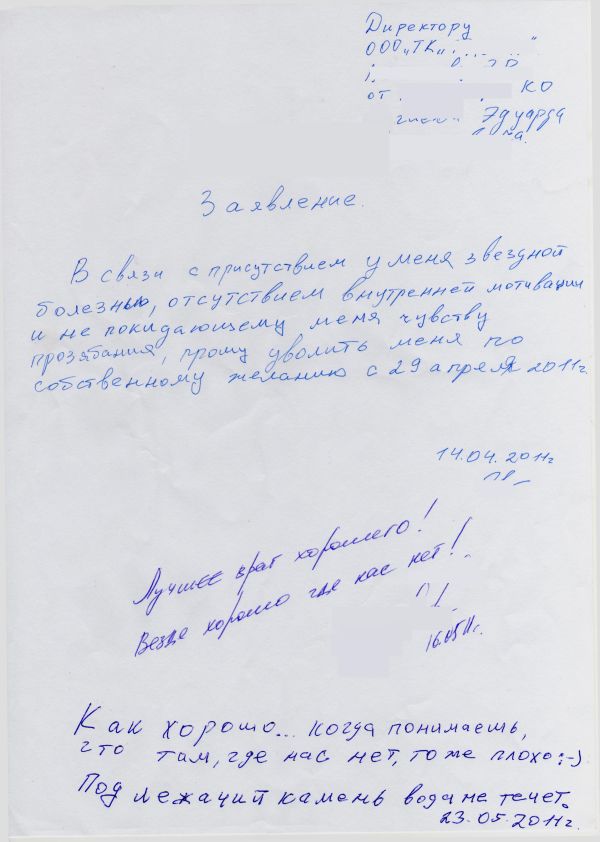 Директору
ООО „ТК„
от КО
Эдуарда
Заявление.
В связи с присутствием у меня звездной
болезнью, отсутствием внутренней мотивации
и не покидающему меня чувству
прозябания, прошу уволить меня по
собственному желанию с 29 апреля 2011г.
14.04.2011г
Лучшее враг хорошего!
Везде хорошо где нас нет!
16.05 11г.
Как хорошо... когда понимаешь,
что там, где нас нет, тоже плохо :-)
Под лежачий камень вода не течет.
23.05.2011г.